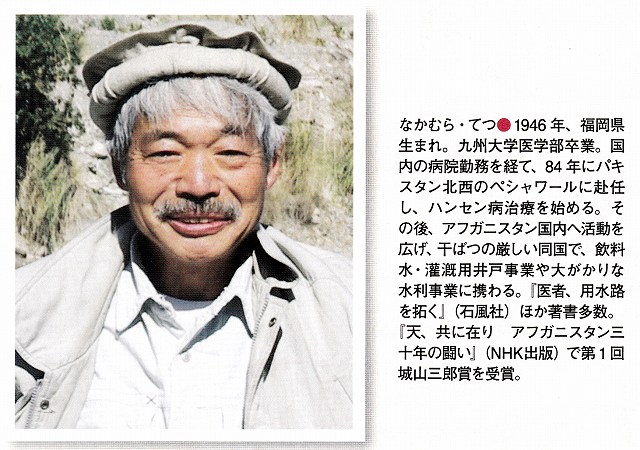 なかむら・てつ●1946年、福岡県
生まれ。九州大学医学部卒業。国
内の病院勤務を経て、84年にパキ
スタン北西のペシャワールに赴任
し、ハンセン病治療を始める。そ
の後、アフガニスタン国内へ活動を
広げ、干ばつの厳しい同国で、飲料
水・灌漑用井戸事業や大がかりな
水利事業に携わる。『医者、用水路
を拓く』（石風社）ほか著書多数。
『天、共に在り　アフガニスタン三
十年の闘い』（NHK出版）で第1回
城山三郎賞を受賞。